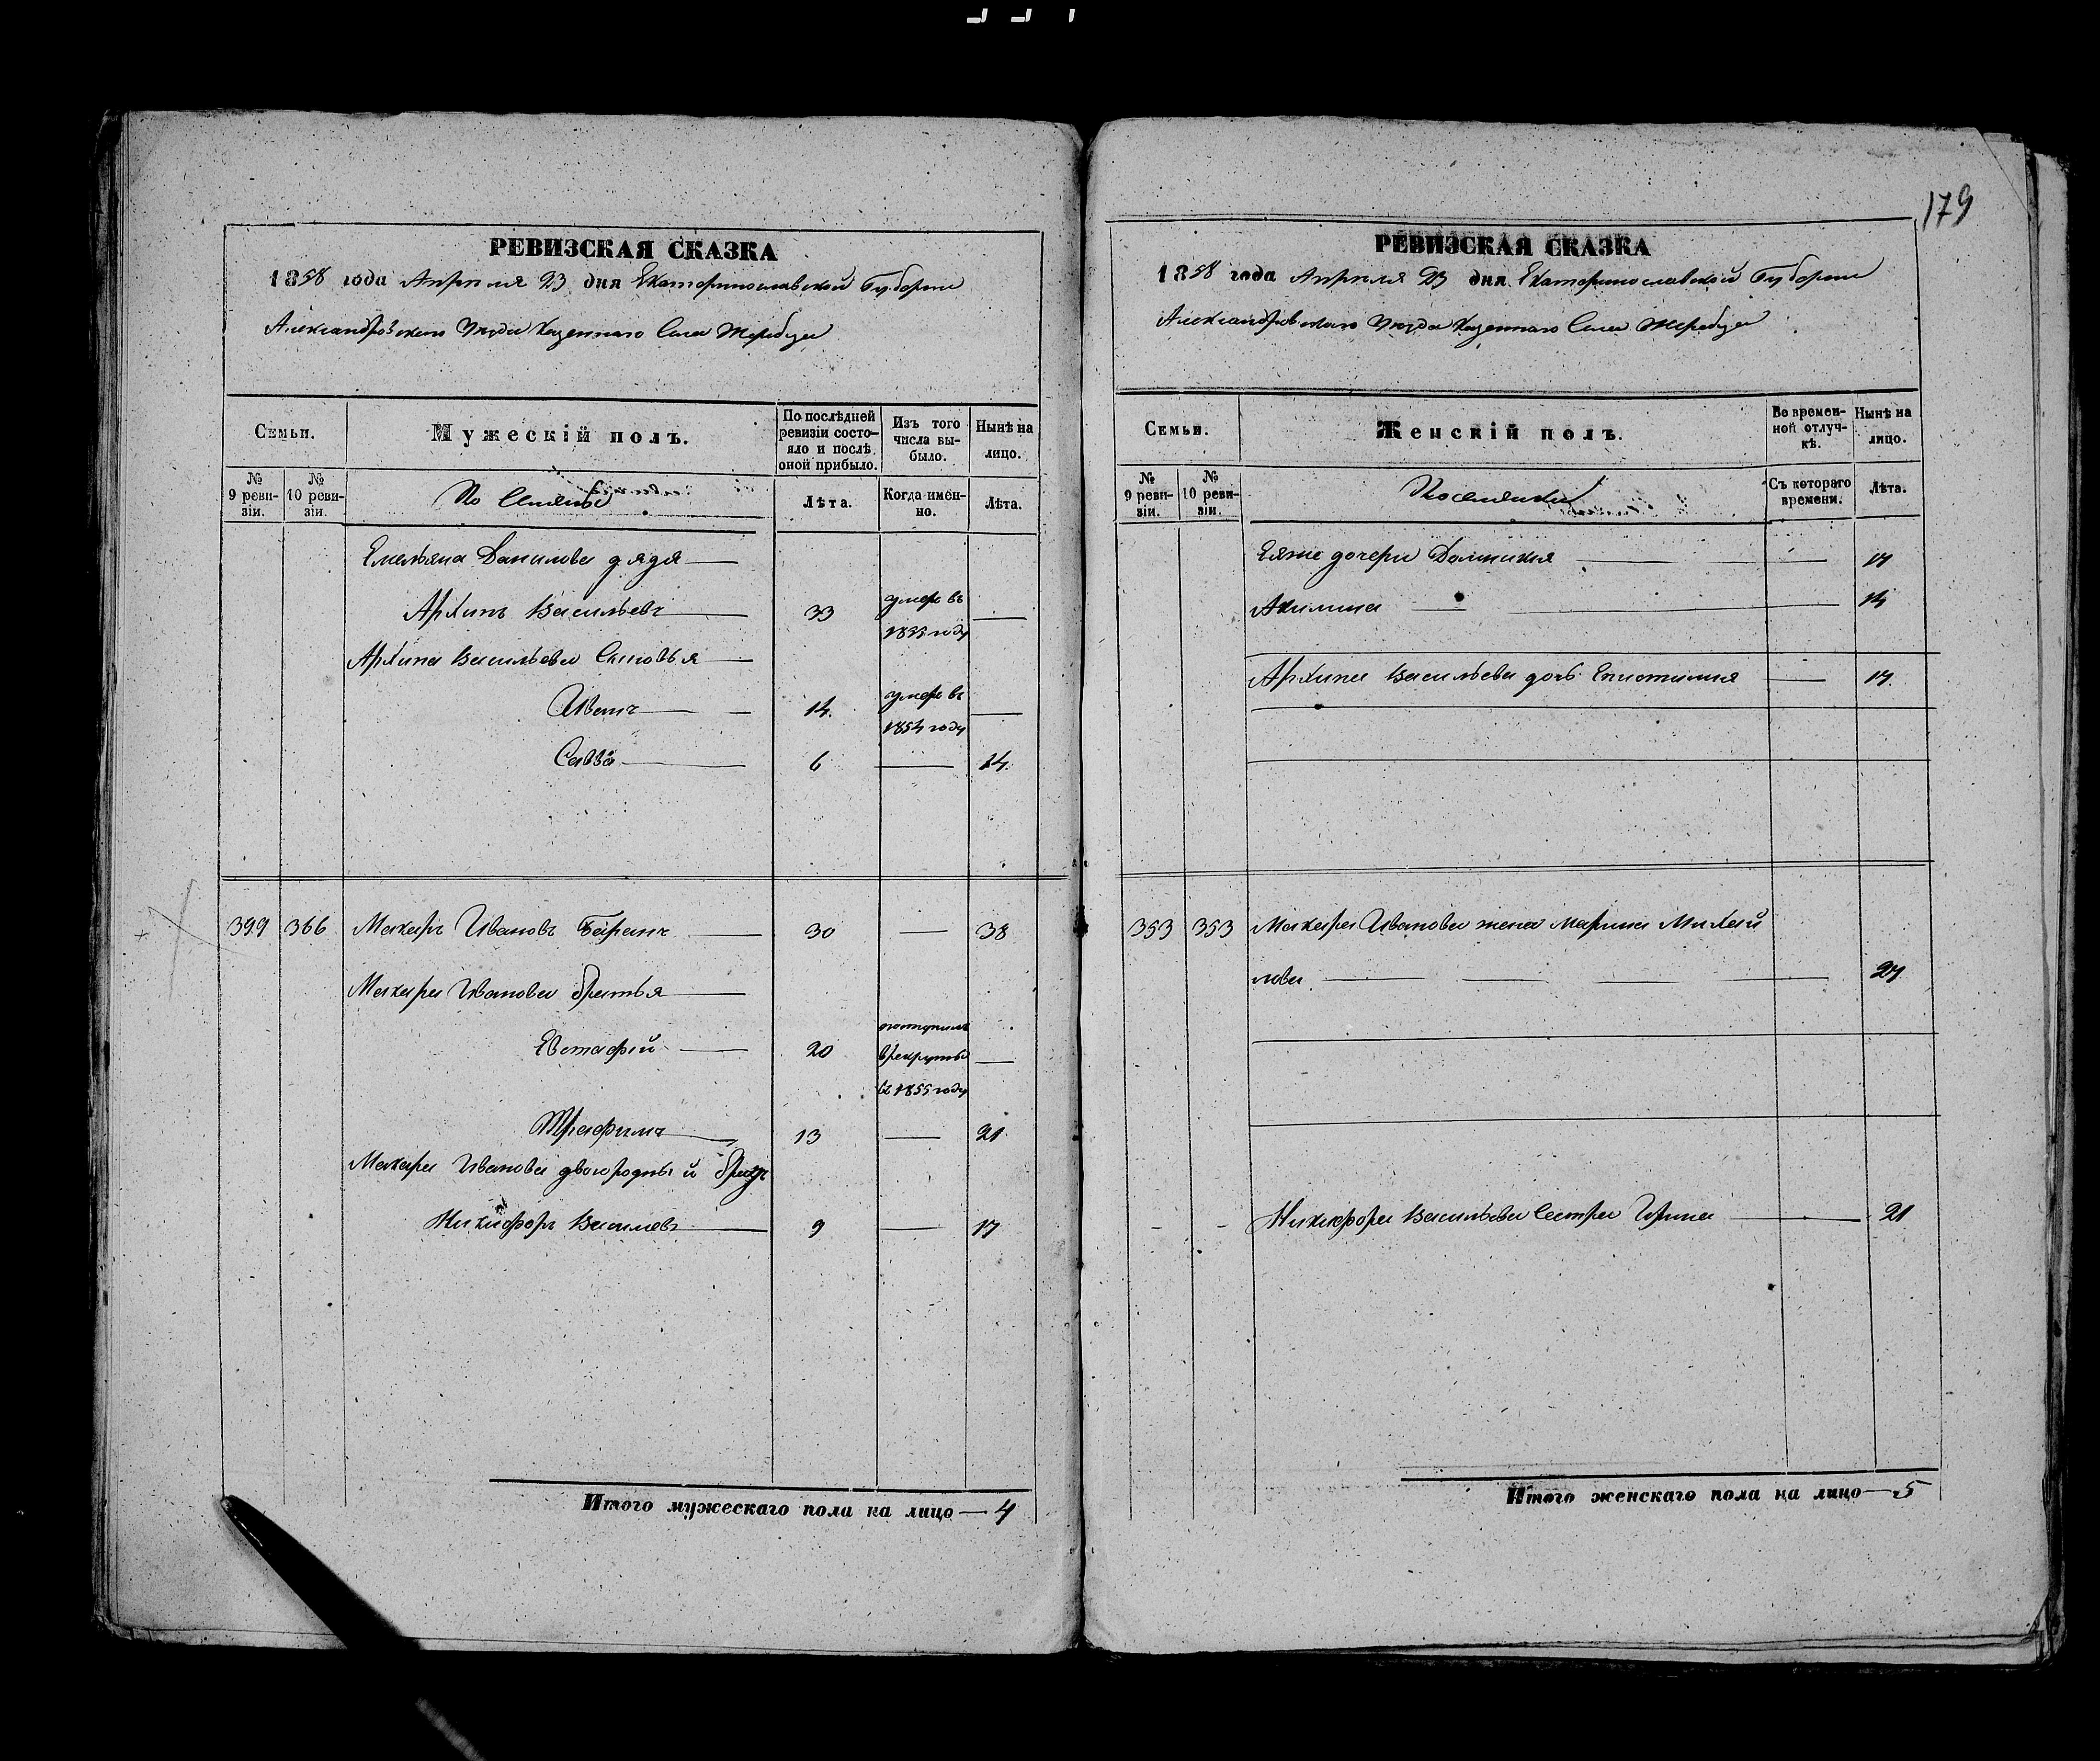 179
РЕВИЗСКАЯ СКАЗКА
1858 года Апреля 23 дня Екатеринославской Губернии
Александровского Уезда Казенного Села Жеребца
Семьи.
Мужескій полъ.
По послѣдней ревизіи состояло и послѣ оной прибыло.
Изъ того числа выбыло.
Нынѣ на лицо.
№ 9 ревизіи.
№ 10 ревизіи.
Лѣта.
Когда именно.
Лѣта.
Емельяна Данилова дядя
Архипъ Васильевъ 33 умеръ въ 1855 году
Архипа Васильева Сыновья
Иванъ 14 умеръ въ 1854 году
Савва 6 14
399 366 Макаръ Ивановъ Баранъ 30 38
Макара Иванова братья
Евстафій 20 поступилъ в рекруты въ 1855 году
Трофимъ 13 21
Макара Иванова двоюродный братъ
Никифоръ Васильевъ 9 17
Итого мужескаго пола на лицо — 4
РЕВИЗСКАЯ СКАЗКА
1858 года Апреля 23 дня Екатеринославской Губернии
Александровского Уезда Казенного Села Жеребца
Семьи.
Женскій полъ.
Во временной отлучкѣ.
Нынѣ на лицо.
№ 9 ревизіи.
№ 10 ревизіи.
Поселянки
Съ котораго времени.
Лѣта.
Еяже дочери Домникия 17
Акилина 14
Архипа Васильева дочь Епистимия 17
353 353 Макара Иванова жена Марина Михай
лова 27
Никифора Васильева Сестра Ирина 21
Итого женскаго пола на лицо — 5